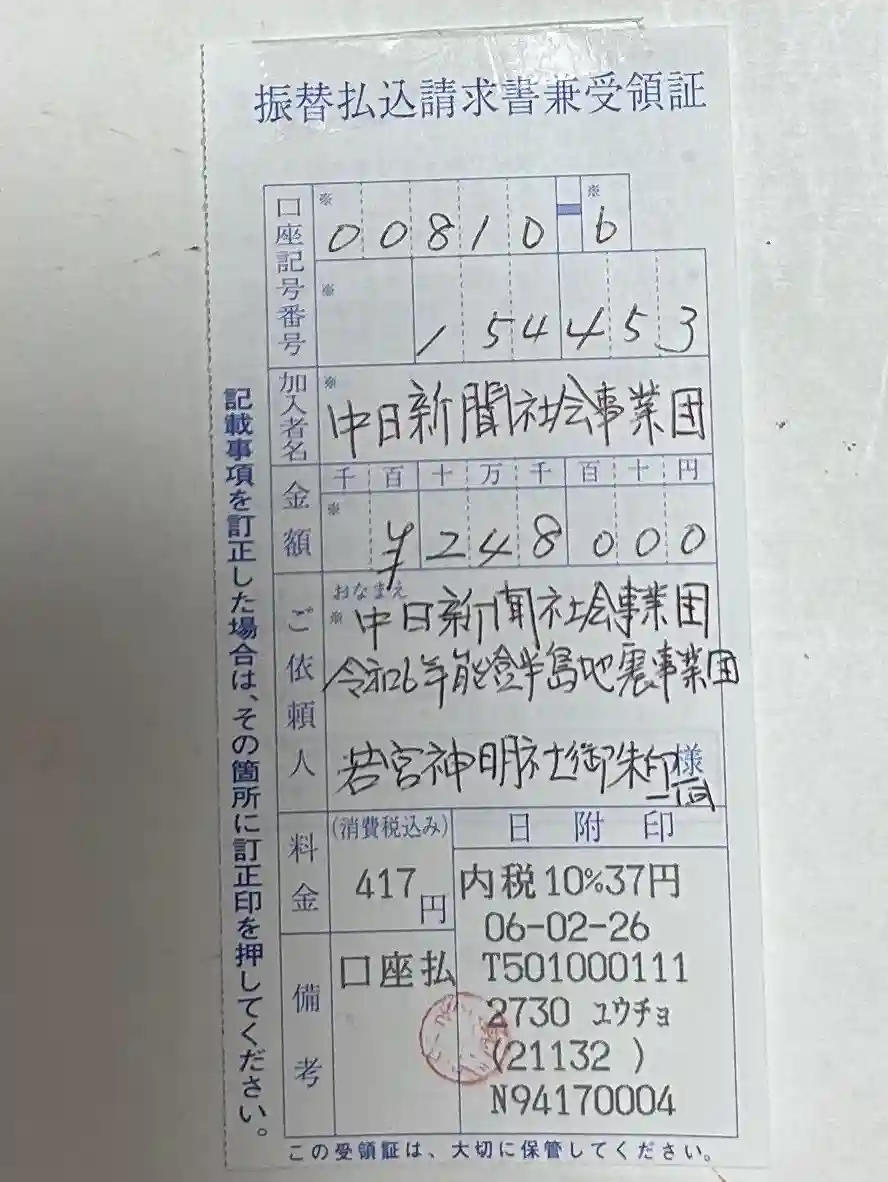 振替払込請求書兼受領証
口座記号番号
※ ※
00810-6
※
154453
加入者名
※
中日新聞社会事業団
金額
千百十万千百十円
※
¥248000
ご依頼人
おなまえ
※
中日新聞社会事業団
令和6年能登半島地震事業団
若宮神明社御朱印様
一同
料金
(消費税込み)
417円
日附印
内税10%37円
06-02-26
T501000111
2730 ユウチョ
(21132 )
N94170004
備考
口座払
記載事項を訂正した場合は、その箇所に訂正印を押してください。
この受領証は、大切に保管してください。